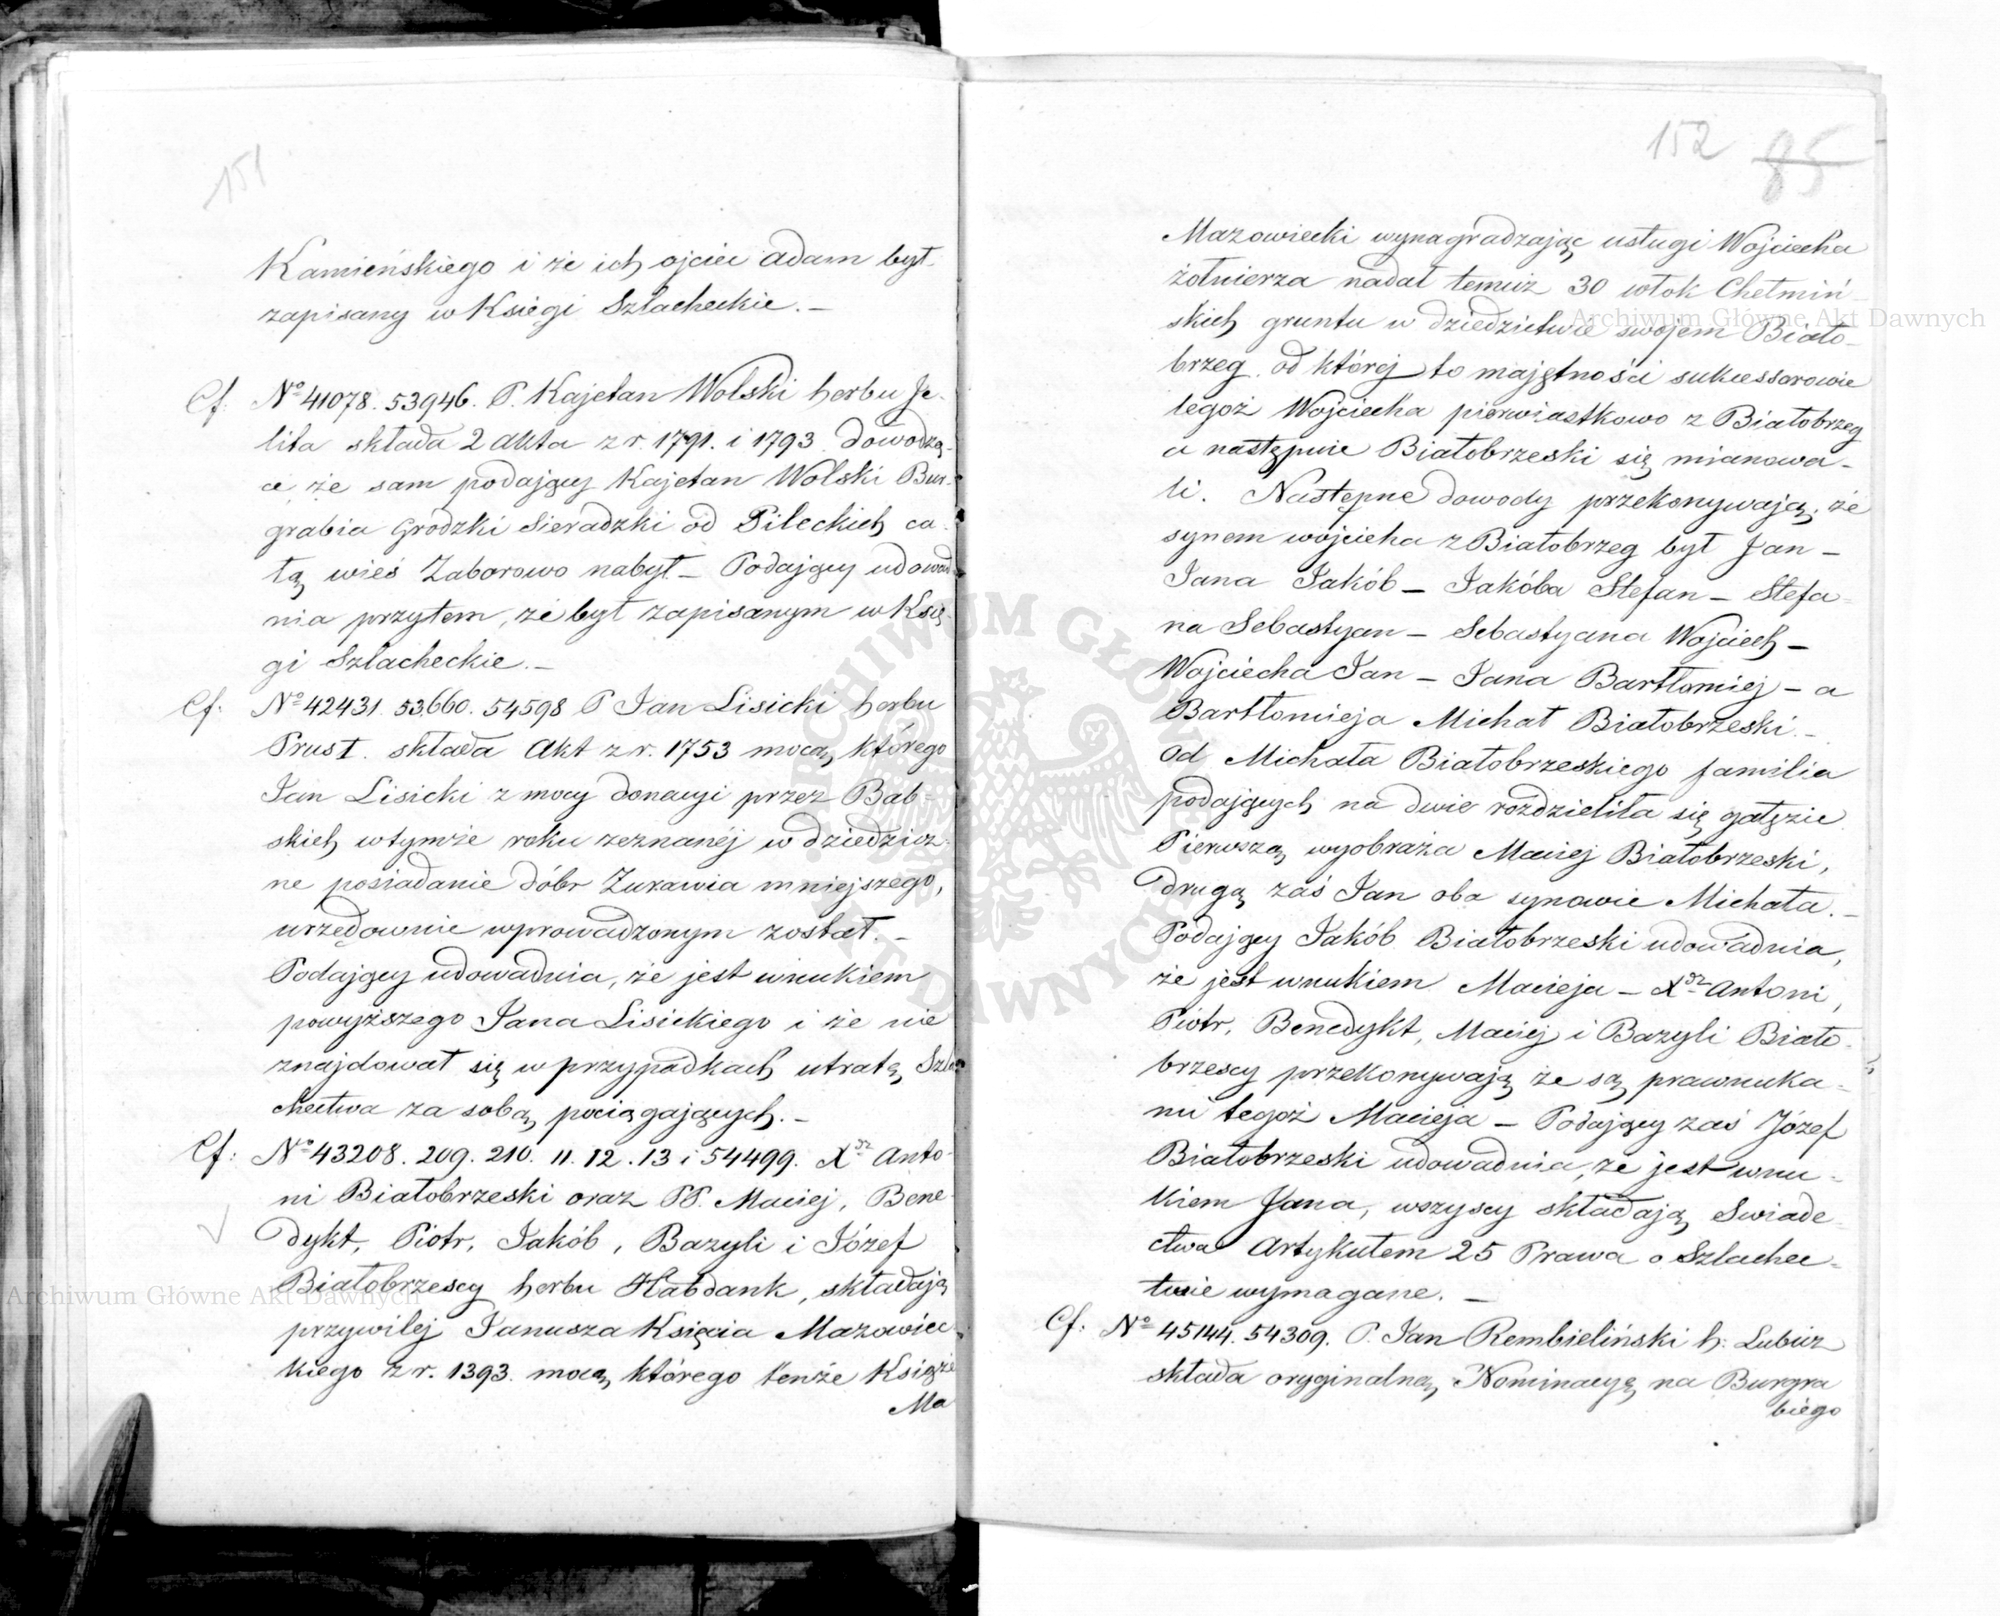 151
Kamieńskiego i że ich ojciec Adam był
zapisany w Księgi Szlacheckie. –
Cf. Nº 41078. 53946. P. Kajetan Wolski herbu Je-
lita składa 2 Akta z r. 1791. i 1793 dowodzą-
ce, że sam podający Kajetan Wolski Bur-
grabia Grodzki Sieradzki od Pileckich ca-
łą wieś Zaborowo nabył – Podający udowad-
nia przytem, że był zapisanym w Księ-
gi Szlacheckie. –
Cf. Nº 42431. 53.660. 54598 P Jan Lisicki herbu
Prus I. składa Akt z r. 1753 mocą którego
Jan Lisicki z mocy donacyi przez Bab-
skich w tymże roku zeznanéj w dziedzicz-
ne posiadanie dóbr Zurawia mniejszego,
urzędownie wprowadzonym został. –
Podający udowadnia, że jest wnukiem
powyższego Jana Lisickiego i że nie
znajdował się w przypadkach utratę Szla-
chectwa za sobą pociągających. –
Cf: Nº 43208. 209. 210. 11. 12. 13 i 54499. Xdz Anto-
ni Białobrzeski oraz PP. Maciej, Bene-
dykt, Piotr, Jakób, Bazyli i Józef
Białobrzescy herbu Habdank, składają
przywilej Janusza Księcia Mazowiec-
kiego z r. 1393. mocą którego tenże Książe
Ma
152 85
Mazowiecki wynagradzając usługi Wojciecha
żołnierza nadał temuż 30 włok Chełmiń-
skich gruntu w dziedzictwie swojem Biało-
brzeg, od której to majętności sukcessorowie
tegoż Wojciecha pierwiastkowo z Białobrzeg
a następnie Białobrzeski się mianowa-
li. Następne dowody przekonywają, że
synem wojciecha z Białobrzeg był Jan –
Jana Jakób – Jakóba Stefan – Stefa-
na Sebastyan – Sebastyana Wojciech –
Wojciecha Jan – Jana Bartłomiej – a
Bartłomieja Michał Białobrzeski. –
Od Michała Białobrzeskiego familia
podających na dwie rozdzieliła się gałęzie
Pierwszą wyobraża Maciej Białobrzeski,
drugą zaś Jan oba synowie Michała. –
Podający Jakób Białobrzeski udowadnia,
że jest wnukiem Macieja – Xdz Antoni,
Piotr, Benedykt, Maciej i Bazyli Biało-
brzescy przekonywają że są prawnuka-
mi tegoż Macieja – Podający zaś Józef
Białobrzeski udowadnia, że jest wnu-
kiem Jana, wszyscy składają Swiade-
ctwa Artykułem 25 Prawa o Szlachec-
twie wymagane. –
Cf. Nº 45144. 54309. P. Jan Rembieliński h: Lubicz
składa oryginalną Nominacyę na Burgra
biego
Archiwum Główne Akt Dawnych
Archiwum Główne Akt Dawnych
ARCHIWUM GŁÓWNE AKT DAWNYCH